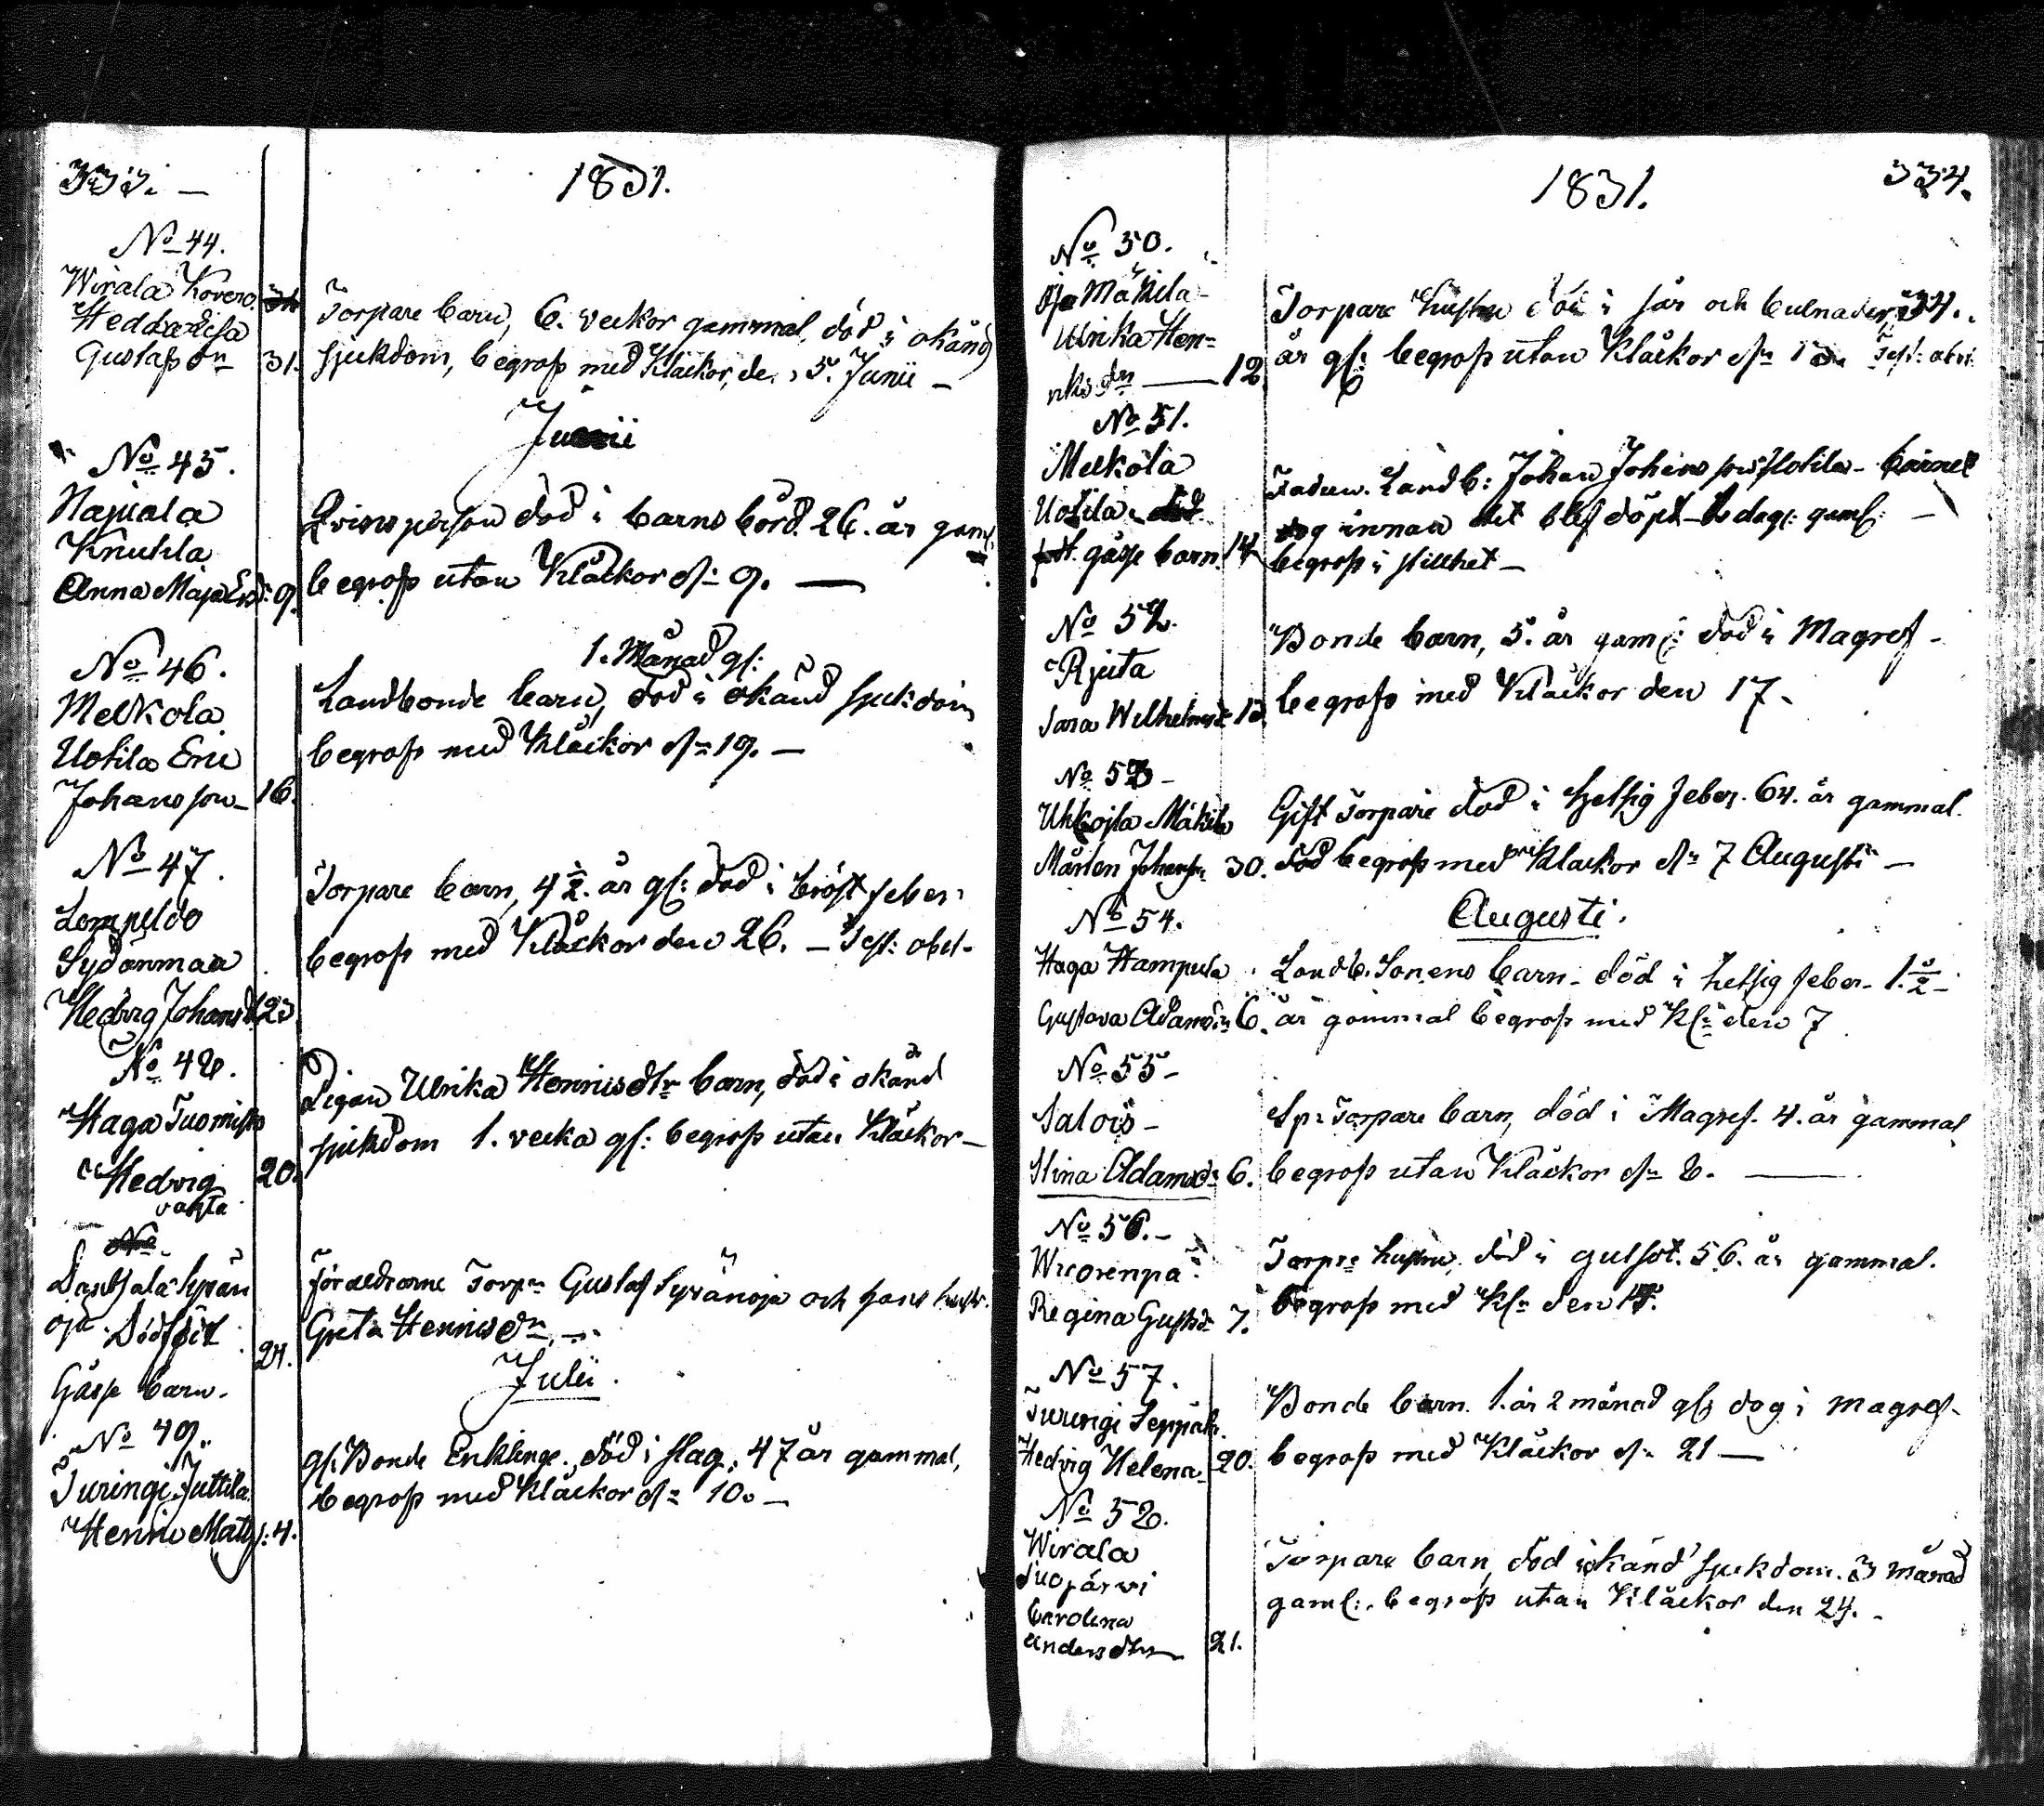 333. —
1831.
No 44.
Wirala Kovero
Hedda Lisa
Gustafs dn 31.
Torpare barn, 6. veckor gammal, död i okänd
sjukdom, begrofs med Klåckor, den 5. Junii —
Junii
No 45.
Najuala
Knuhla
Anna Maja Ersd: 9.
Qvinsperson död i barns börd. 26. år gaml:
begrofs utan Klåckor dn 9. —
No 46.
Melkola
Uotila Eric
Johansson — 16.
1. Månad gl:
Landbonde barn, död i okänd sjukdom
begrofs med Klåckor dn 19. —
No 47.
Lempeldo
Sydänmaa
Hedvig Johansd: 23
Torpare barn, 4 1/2. år gl: död i bröst feber
begrofs med Klåckor den 26. — Test: obd.
No 48.
Haga Tuomisto
Hedvig 20.
oäkta
Pigan Ulrika Henricsdtr barn, död i okänd
sjukdom 1. vecka gl: begrofs utan Klåckor —
No
Syvän
oja Dödfödt 24.
Gåsse barn.
Föräldrarne Torpn Gustaf Syvänoja och hans hustr.
Greta Henricsdn —
Julii
No 49.
Turingi Juttila
Henric Mats s: 4.
gl: Bonde Enklinge, död i slag, 47 år gammal,
begrofs med Klåckor dn 10. —
1831.
334.
No 50.
Oja Mäkila
Ulrika Hen=
riks dn — 12.
Torpare hustru död i sår och bulnader, 34.
år gl: begrofs utan Klåckor dn Test: obd.
No 51.
Melkola
Uotila
gåsse barn. 14
Fadren. Landb: Johan Johansson Uotila — barnet
dog innan det blef döpt — dag: gaml: —
begrofs i stillhet —
No 52.
Rjuta
Sara Wilhelmsd: 13.
Bonde barn, 5. år gaml: död i Magref —
begrofs med Klåckor den 17.
No 53 —
Uhkoila Mäkila
Mårten Johansson 30.
Gift Torpare död i hetsig feber. 64. år gammal.
begrofs med Klackor dn 7 Augusti —
Augusti.
No 54.
Haga Hampula
Gustava Adamsdn 6.
Landb. Sonens barn — död i hetsig feber — 1. 1/2 —
år gammal begrofs med Kl: den 7
No 55 —
Salois —
Stina Adamsd: 6.
Sp: Torpare barn, död i Magref. 4. år gammal
begrofs utan Klåckor dn 8. —
No 56. —
Wuorenpä
Regina Gustsd: 7.
Torpre hustru, död i gulsot. 56. år gammal.
begrofs med Kl: den 14.
No 57.
Turingi Seppälä
Hedvig Helena 20.
Bonde barn. 1. år 2 månad gl: dog i magref —
begrofs med Klåckor dn 21 —
No 58.
Wirala
Suojärvi
Carolina
Andersdtr — 21.
Torpare barn, död i okänd sjukdom. 3 månad
gaml:. begrofs utan Klåckor den 24. —